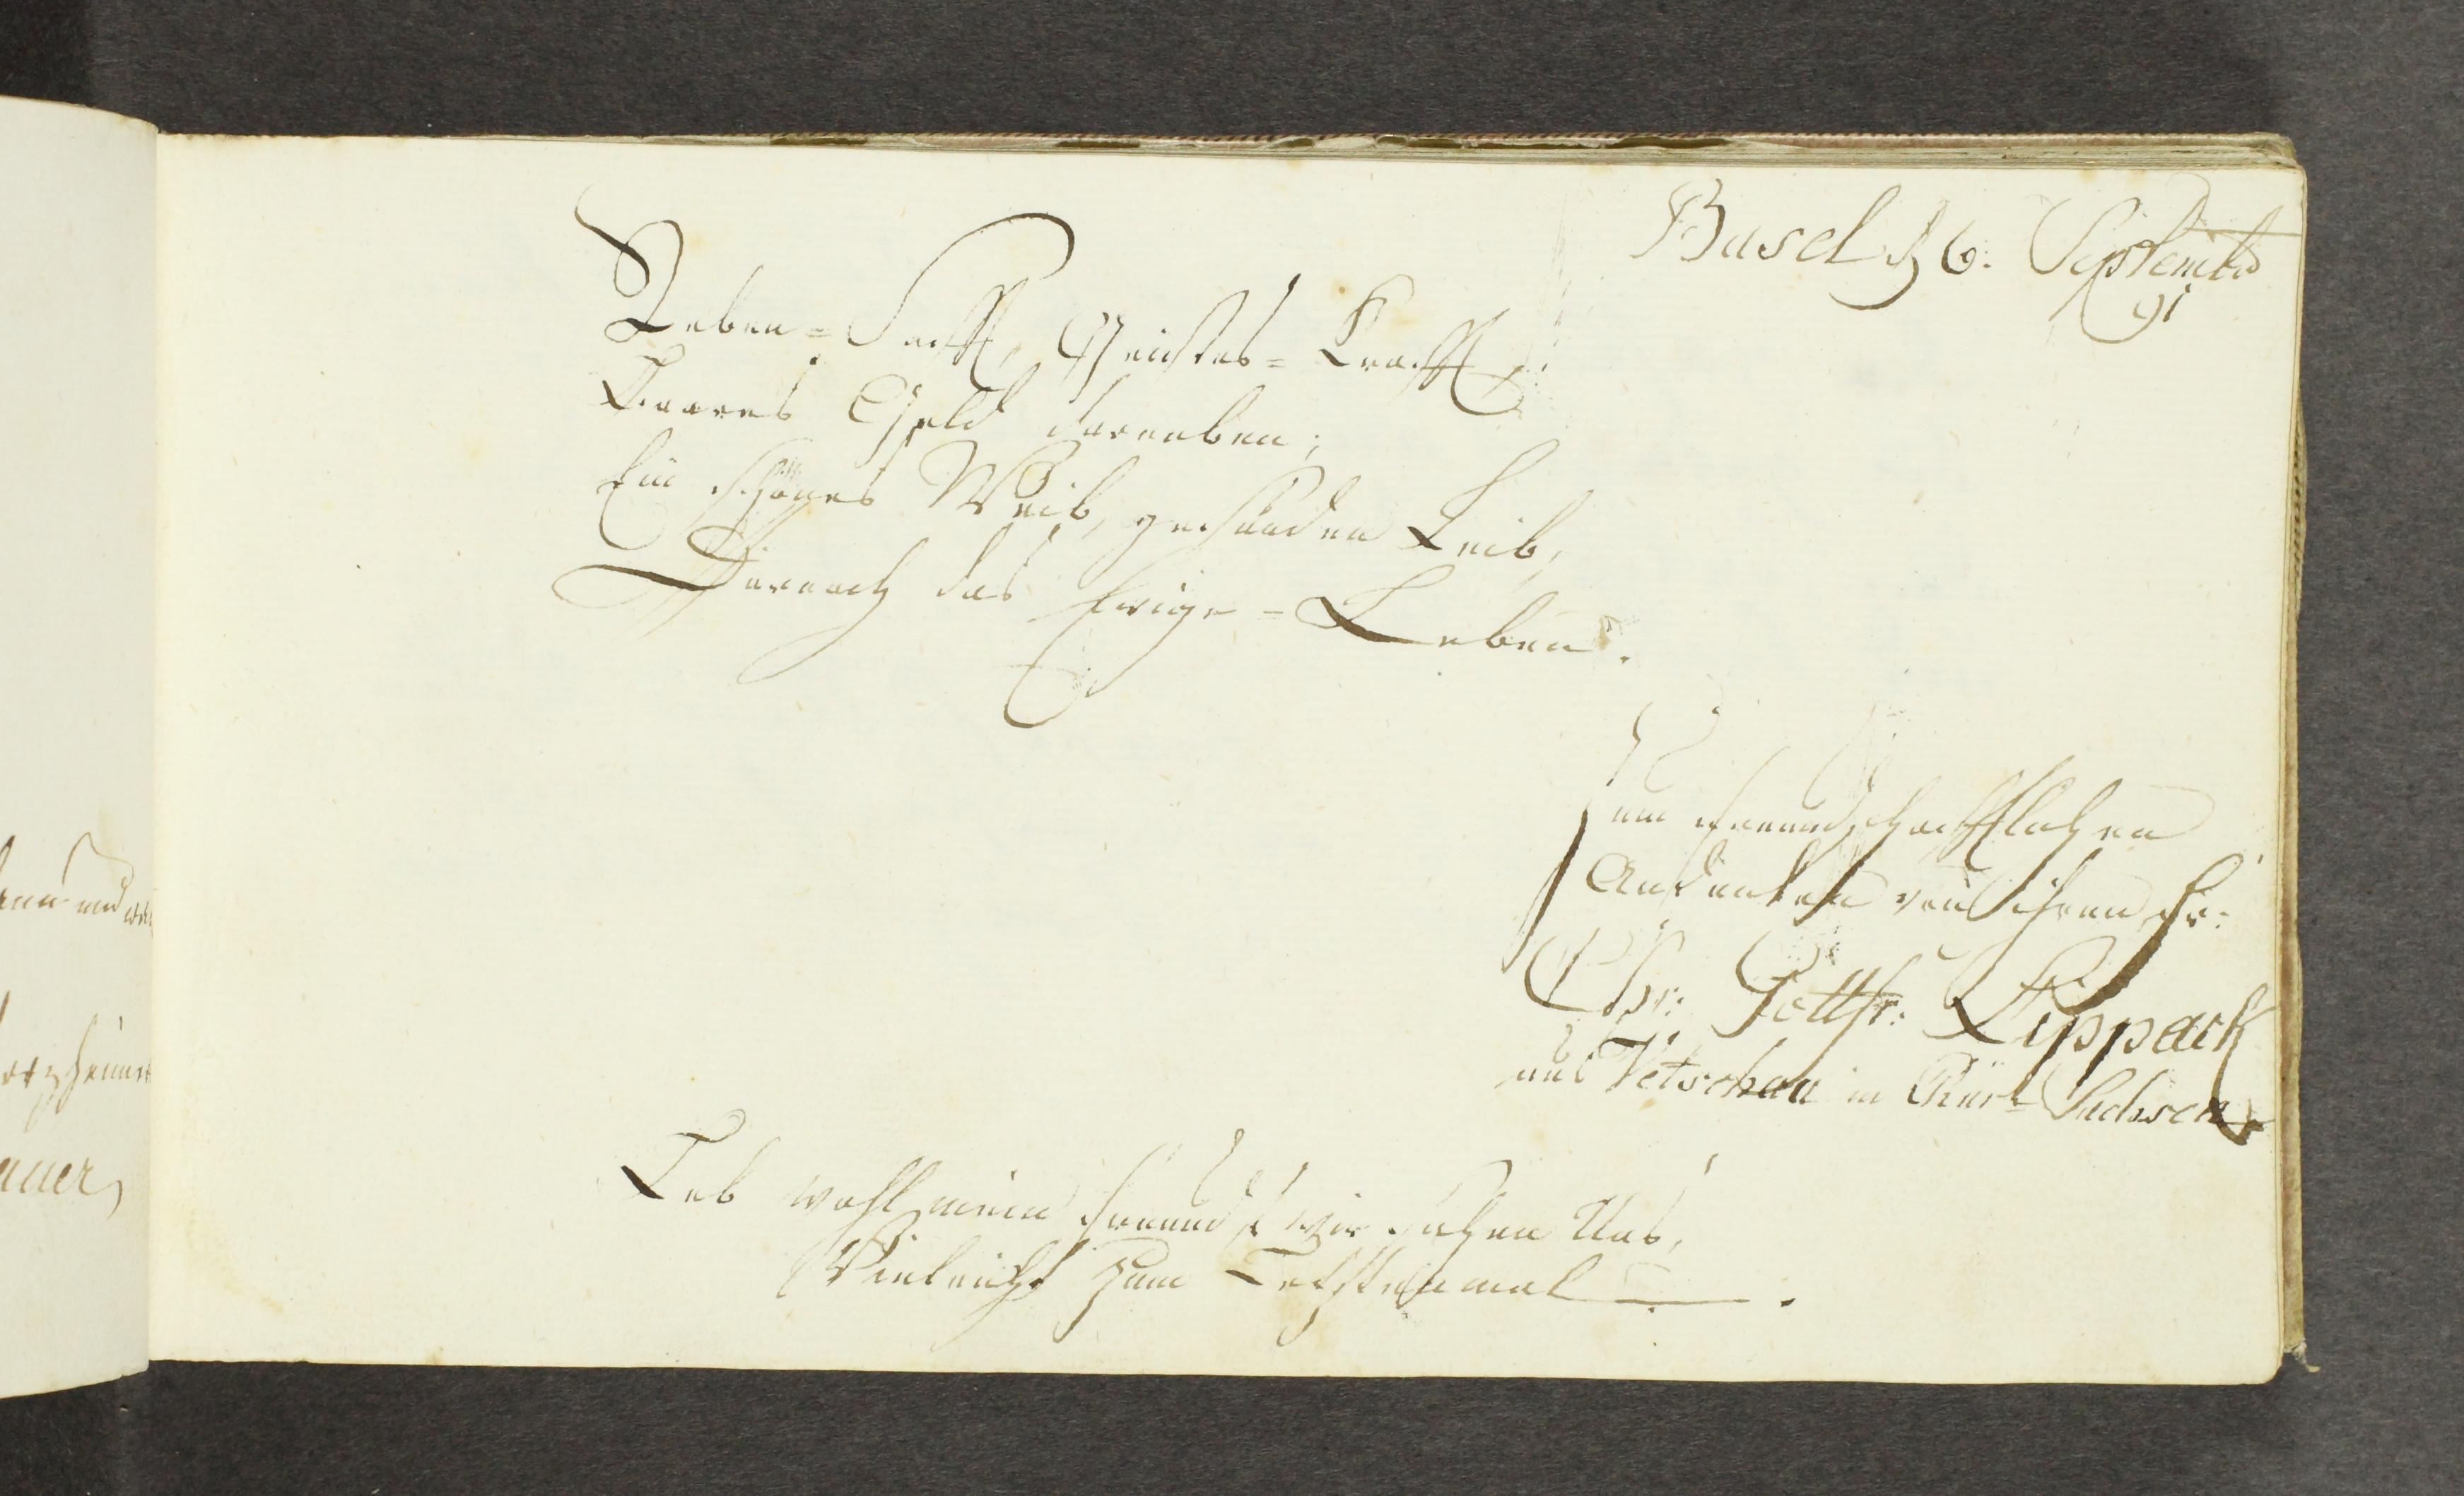 Basel d 6. Septembr
91
Reben=Safft, Geistes=Krafft,
Baares Geld darneben;
Ein schönes Weib, gesunden Leib,
Darnach das Ewige=Leben.
Zum freundschafftlichen
Andenken von ihren Fr:
Chr: Gottfr: Lippack
aus Vetschau in Chur=Sachsen
Leb wohl mein Freund wir sehen Uns,
Vieleicht zum Letstenmal —.